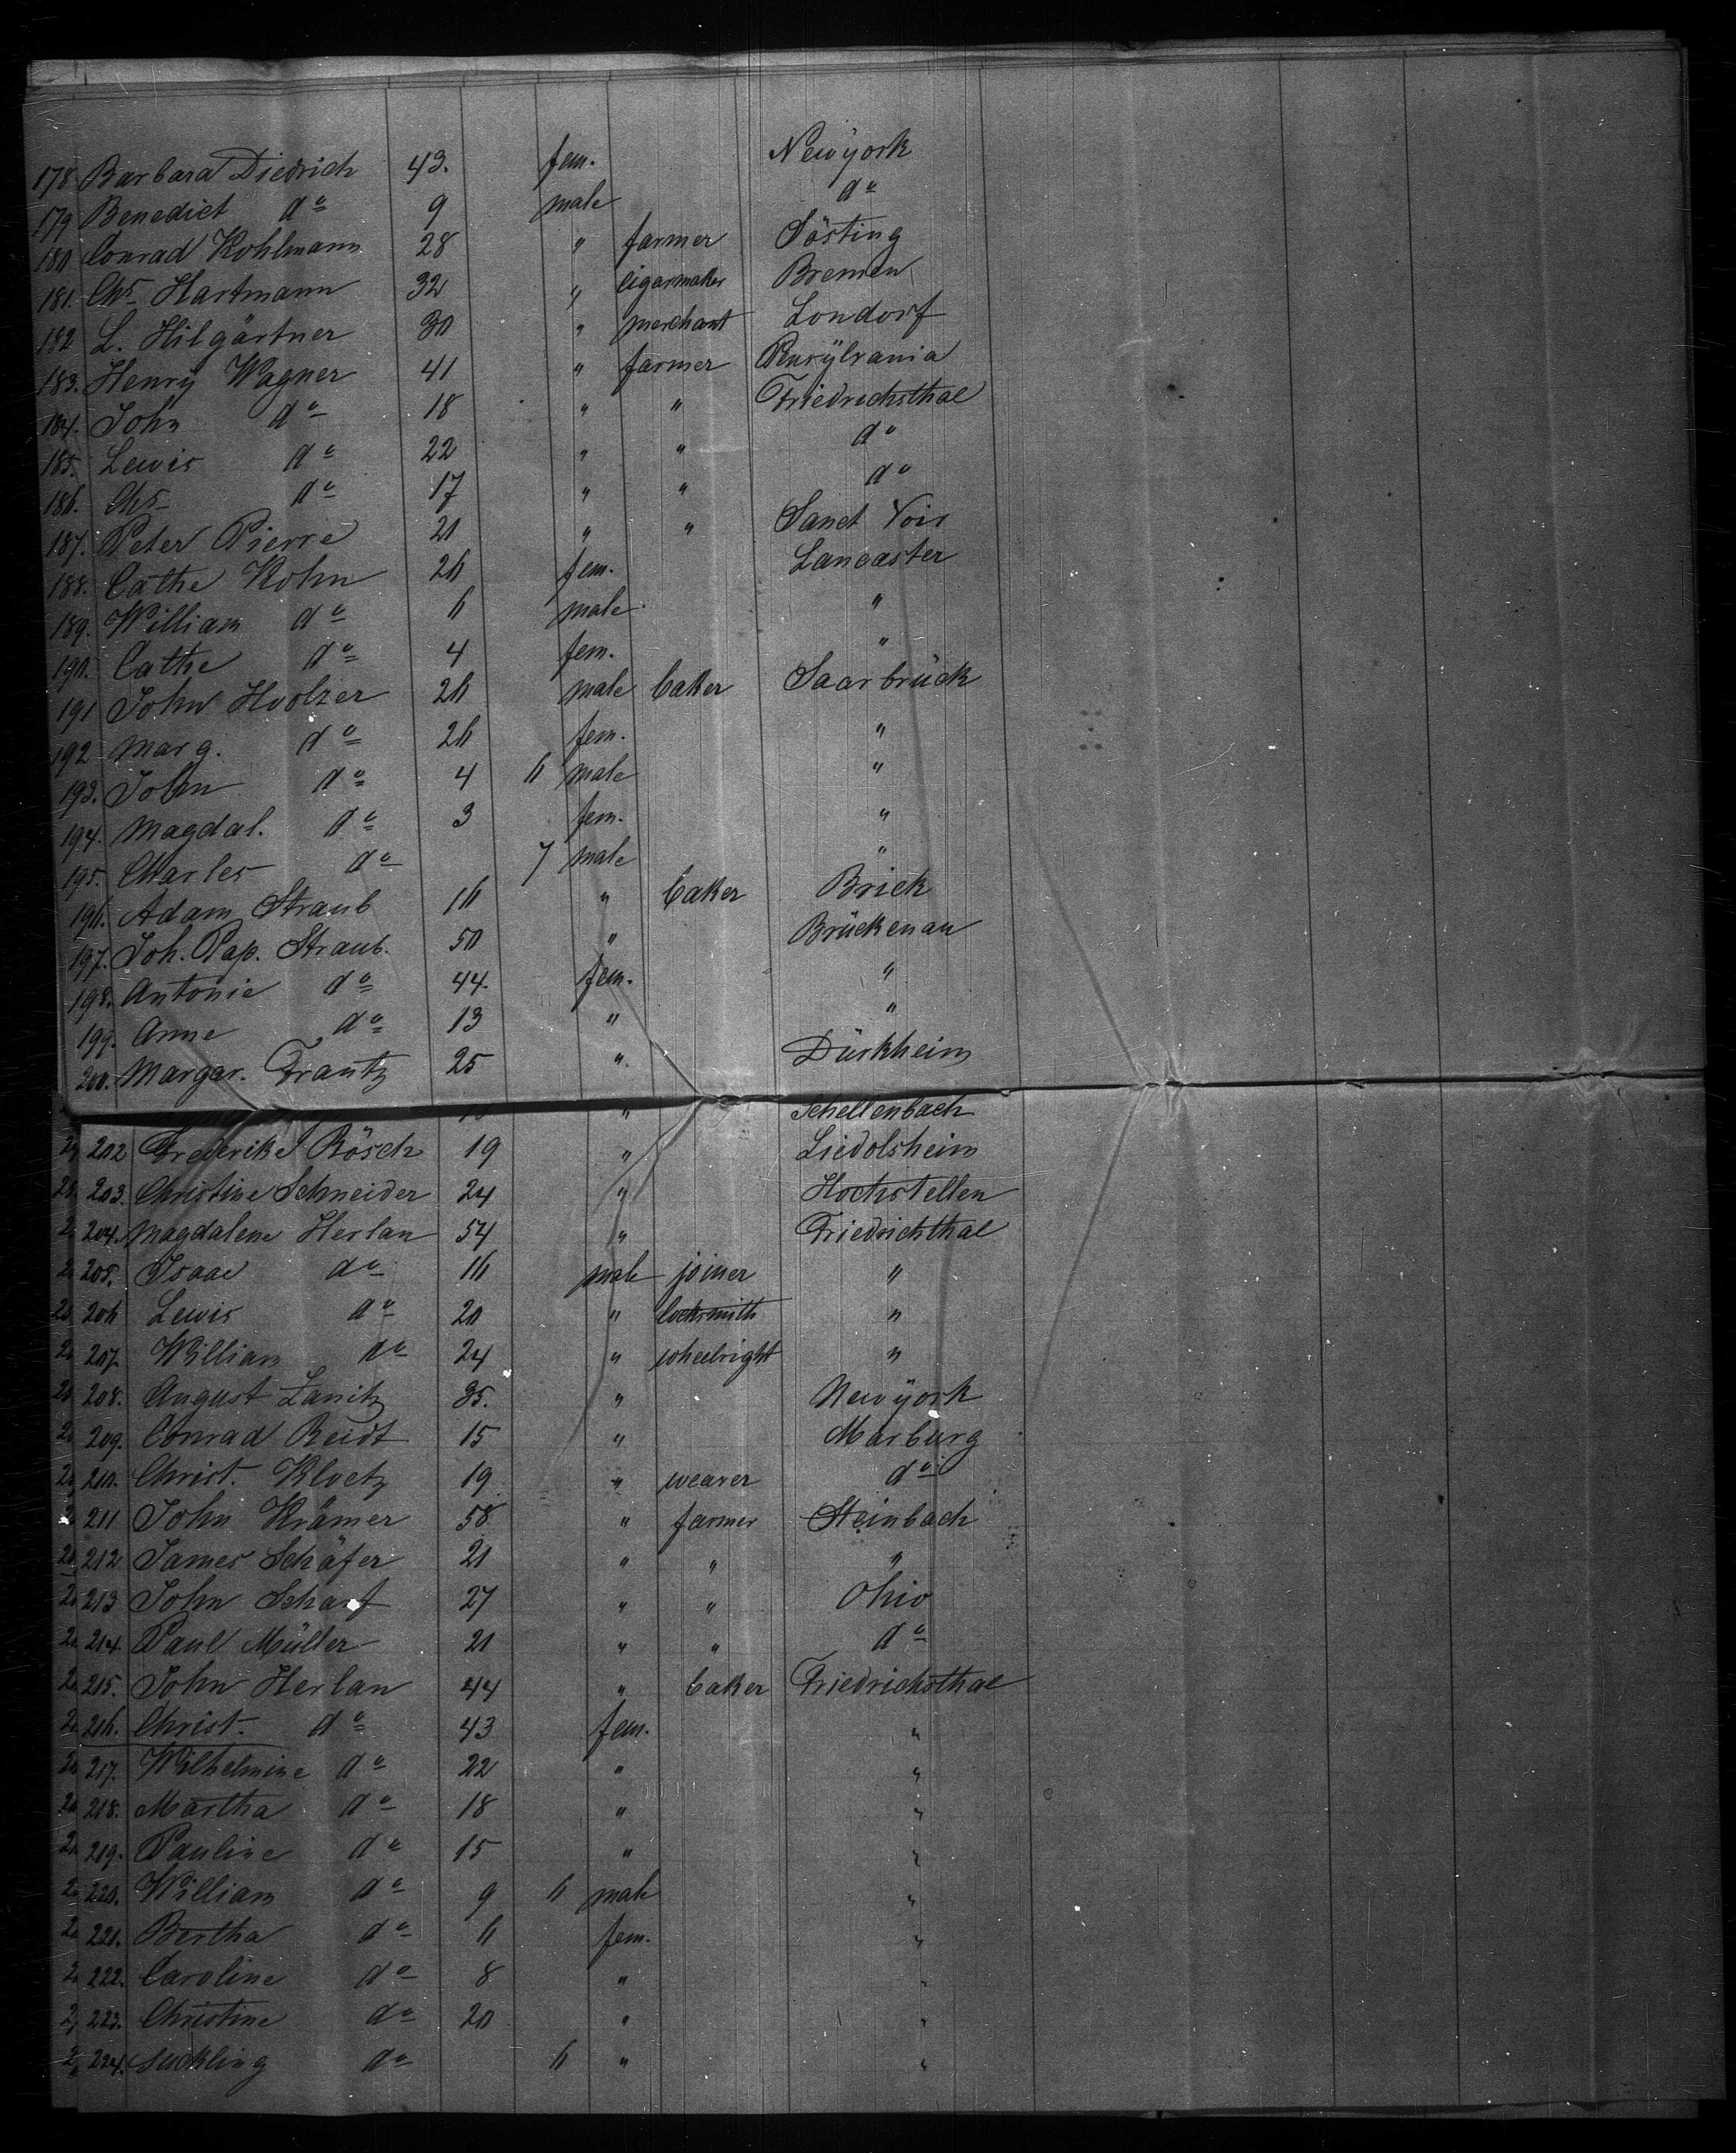 178 Barbara Diedrich 43. fem. Newÿork
179 Benedict do 9 male do
180 Conrad Kohlmann 28 " farmer Sösting
181. Chs Hartmann 32 " cigarmaker Bremen
182 L. Hilgärtner 30 " merchant Londorf
183. Henrÿ Wagner 41 " farmer Pensÿlvania
184. John do 18 " " Friedrichsthal
185. Lewis do 22 " " do
186. Chs do 17 " " do
187. Peter Pierre 21 " " Sanct Voir
188. Cathe Kohn 26 fem. Lancaster
189. William do 6 male "
190. Cathe do 4 fem. "
191 John Hoolzer 26 male baker Saarbrück
192 Marg. do 26 fem. "
193. John do 4 6 male "
194. Magdal. do 3 fem. "
195. Charles do 7 male "
196. Adam Straub 16 " baker Brick
197. Joh. Pap. Straub. 50 " Brückenau
198. Antonie do 44. fem. "
199. Anne do 13 " "
200. Margar. Frantz 25 " Dürkheim
" Schellenbach
202 Frederike Rösch 19 " Liedolsheim
203. Christine Schneider 24 " Hochstellen
204. Magdalene Herlan 54 " Friedrichthal
205. Isaac do 16 male joiner "
206 Lewis do 20 " locksmith "
207. William do 24 " wheelright "
208. August Lanitz 35. " Newÿork
209. Conrad Reidt 15 " Marburg
210. Christ. Kloetz 19 " weaver do
211 John Krämer 58 " farmer Steinbach
212 James Schäfer 21 " " "
213 John Scharf 27 " " Ohio
214. Paul Müller 21 " " do
215. John Herlan 44 " baker Friedrichsthal
216. Christ. do 43 fem. "
217. Wilhelmine do 22 " "
218. Martha do 18 " "
219. Pauline do 15 " "
220. William do 9 6 male "
221. Bertha do 6 fem. "
222. Caroline do 8 " "
223. Christine do 20 " "
224. Suckling do 6 " "